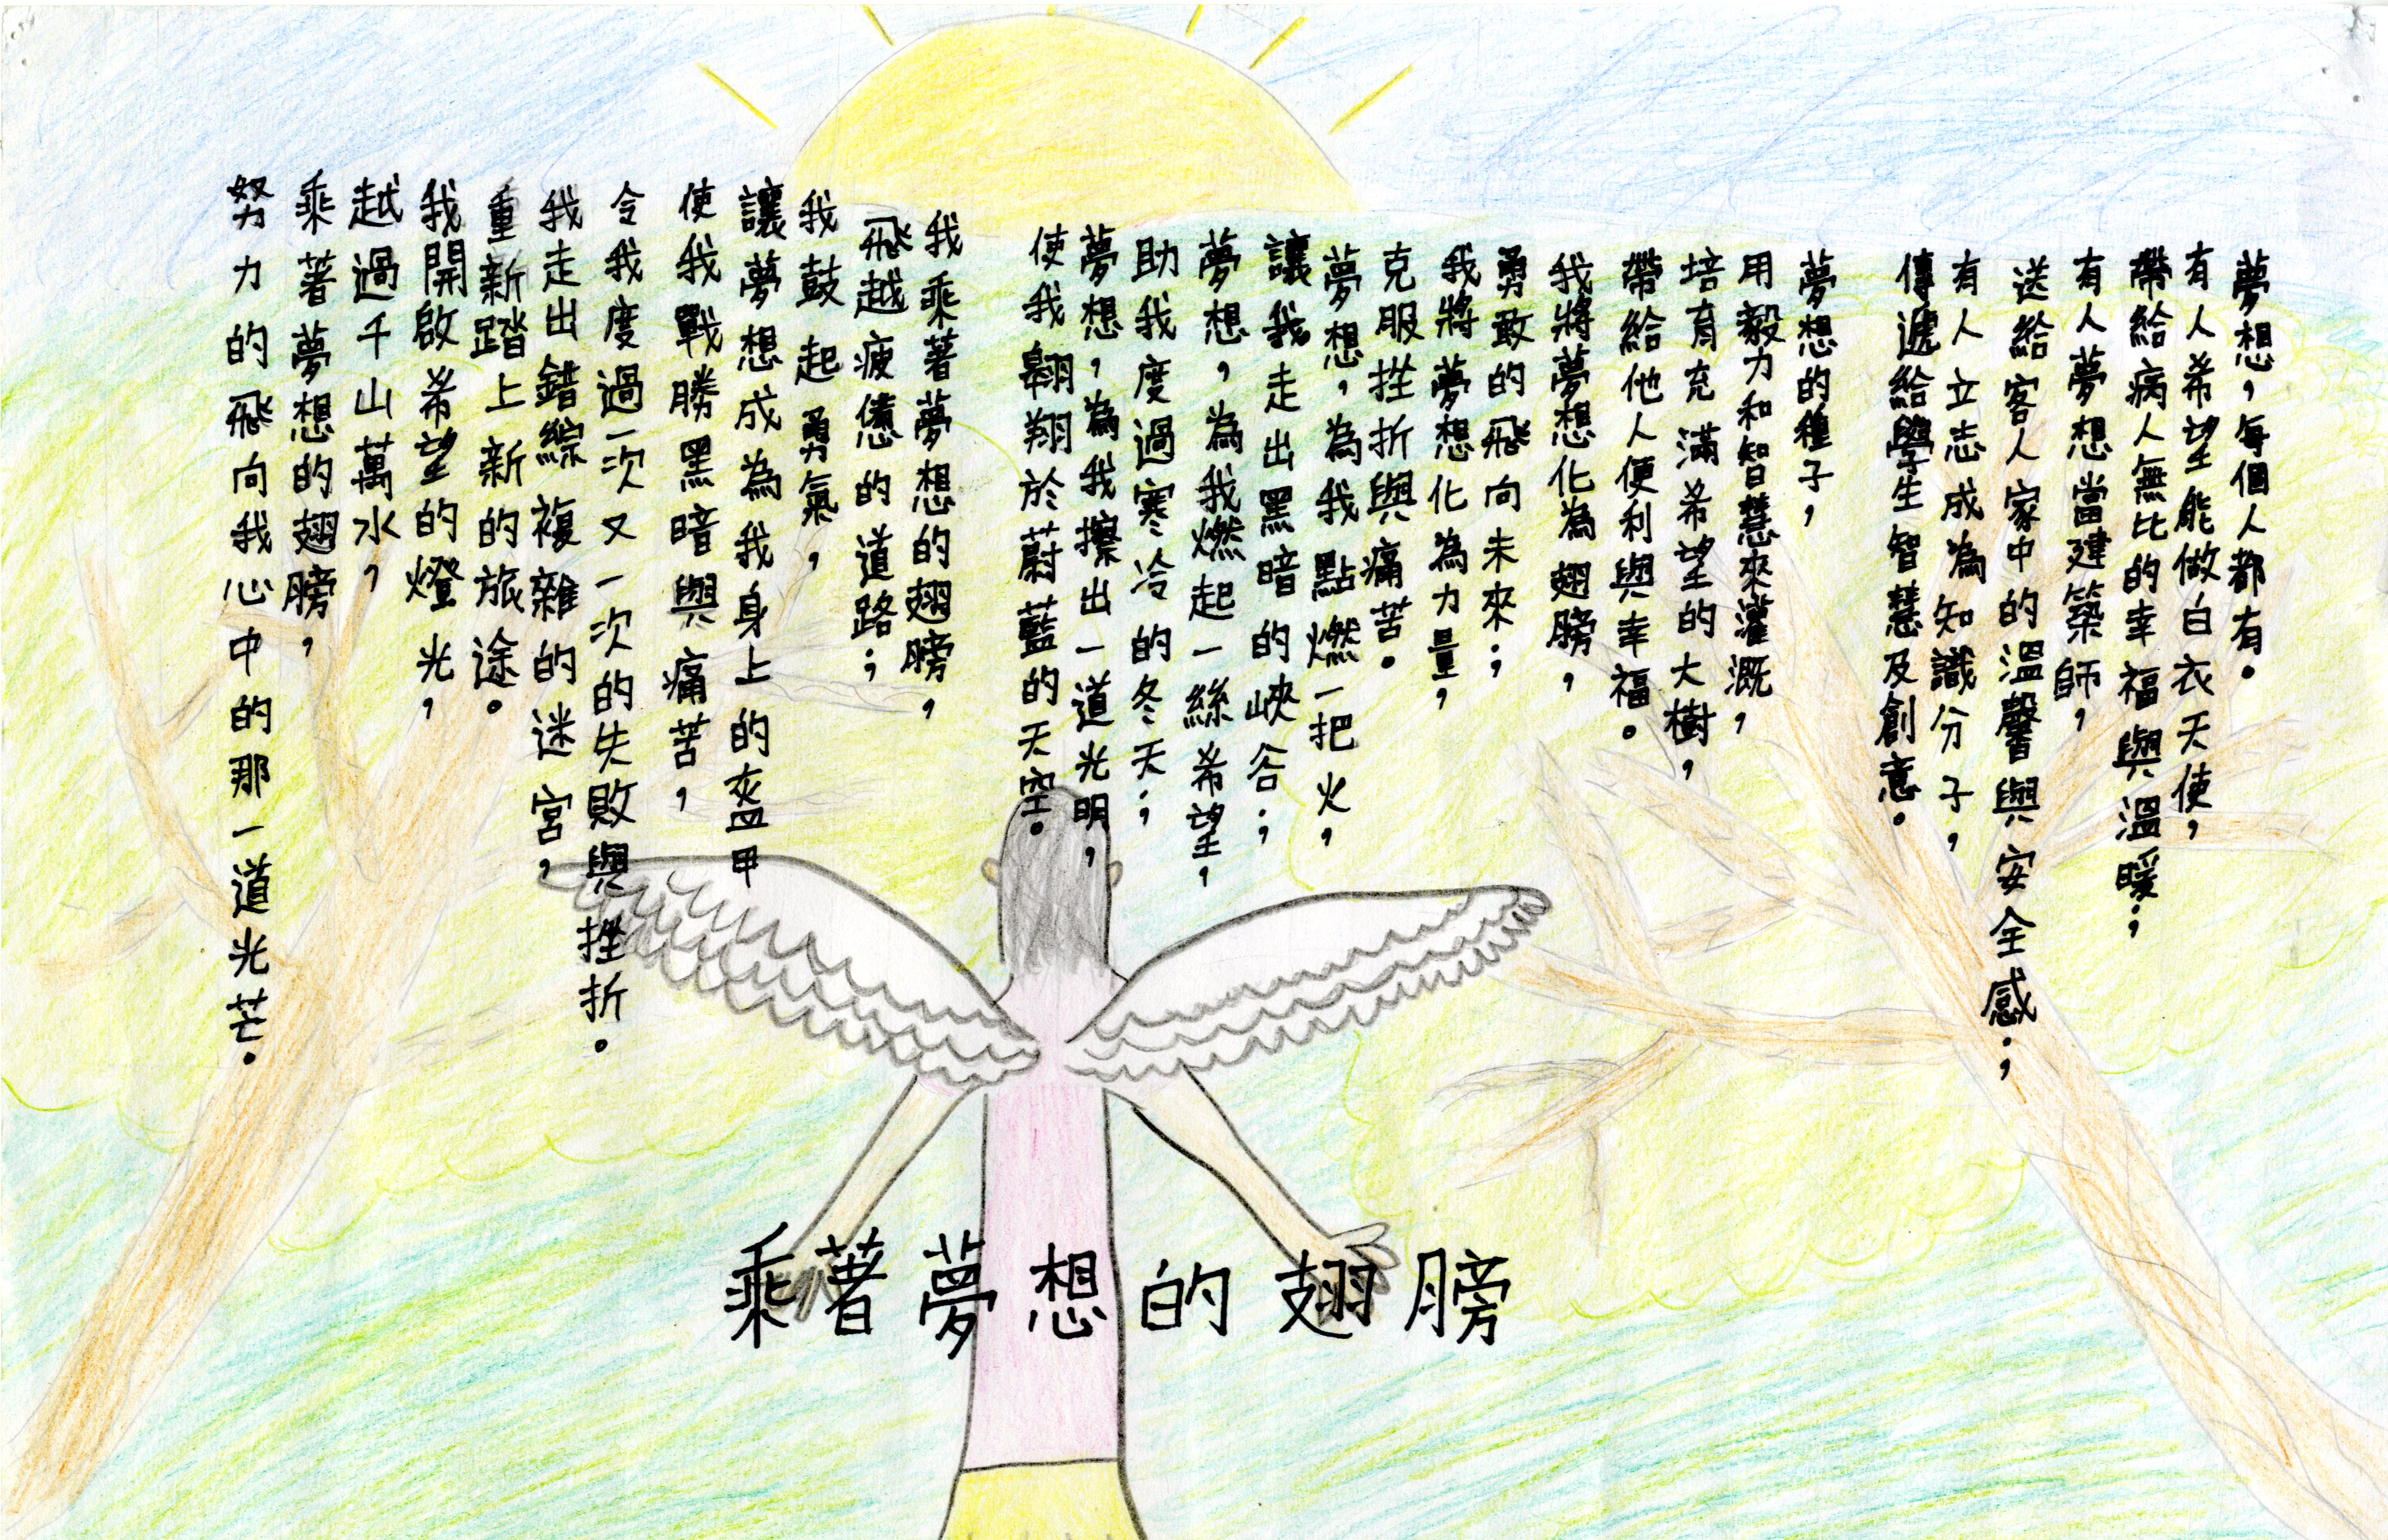 夢想，每個人都有。
有人希望能做白衣天使，
帶給病人無比的幸福與溫暖；
有人夢想當建築師，
送給客人家中的溫馨與安全感；
有人立志成為知識分子，
傳遞給學生智慧及創意。
夢想的種子，
用毅力和智慧來灌溉，
培育充滿希望的大樹，
帶給他人便利與幸福。
我將夢想化為翅膀，
勇敢的飛向未來；
我將夢想化為力量，
克服挫折與痛苦。
夢想，為我點燃一把火，
讓我走出黑暗的峽谷；
夢想，為我燃起一絲希望，
助我度過寒冷的冬天；
夢想，為我擦出一道光明，
使我翱翔於蔚藍的天空。
我乘著夢想的翅膀，
飛越疲憊的道路；
我鼓起勇氣，
讓夢想成為我身上的盔甲
使我戰勝黑暗與痛苦，
令我度過一次又一次的失敗與挫折。
我走出錯綜複雜的迷宮，
重新踏上新的旅途。
我開啟希望的燈光，
越過千山萬水，
乘著夢想的翅膀，
努力的飛向我心中的那一道光芒。
乘著夢想的翅膀